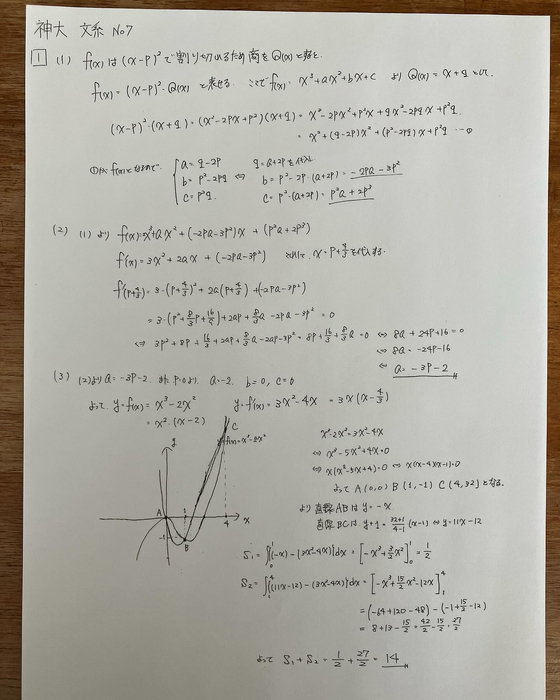 神大 文系 No7
1 (1) f(x)は(x-p)²で割り切れるため商をQ(x)とすると
f(x)=(x-p)²・Q(x) と表せる ここで f(x)= x³+ax²+bx+c より Q(x)= x+q
(x-p)²・(x+q)=(x²-2px+p²)(x+q)= x³-2px²+p²x+qx²-2pqx+p²q
= x³+(q-2p)x²+(p²-2pq)x+p²q …①
a=q-2p q=a+2p
b=p²-2pq ⇔ b=p²-2p・(a+2p)=-2pa-3p²
c=p²q c=p²・(a+2p)=p²a+2p³
(2) (1)より f(x)=x³+ax²+(-2pa-3p²)x+(p²a+2p³)
f'(x)=3x²+2ax+(-2pa-3p²) x=p+4/3を代入する.
f'(p+4/3)=3・(p+4/3)²+2a(p+4/3)+(-2pa-3p²)
=3・(p²+8/3p+16/9)+2ap+8/3a-2pa-3p²=0
⇔ 3p²+8p+16/3+2ap+8/3a-2ap-3p²=8p+16/3+8/3a=0 ⇔ 8a+24p+16=0
⇔ 8a=-24p-16
⇔ a=-3p-2
(3) (2)より a=-3p-2. p=0より. a=-2. b=0, c=0
よって y=f(x)=x³-2x² y=f'(x)=3x²-4x =3x(x-4/3)
=x²・(x-2)
y
C
f(x)=x³-2x²
A
1
4
x
-1
B
x³-2x²=3x²-4x
⇔ x³-5x²+4x=0
⇔ x(x²-5x+4)=0 ⇔ x(x-4)(x-1)=0
よって A(0,0) B(1,-1) C(4,32)となる.
より 直線ABは y=-x
直線BCは y+1=32+1/4-1(x-1) ⇔ y=11x-12
S₁=∫₀¹{(-x)-(3x²-4x)}dx=[-x³+3/2x²]₀¹=1/2
S₂=∫₁⁴{(11x-12)-(3x²-4x)}dx=[-x³+15/2x²-12x]₁⁴
=(-64+120-48)-(-1+15/2-12)
=8+13-15/2=42/2-15/2=27/2
よって S₁+S₂=1/2+27/2=14